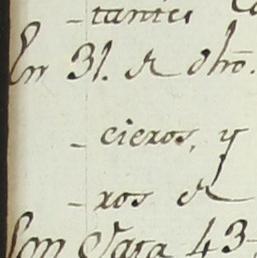 -tantes
En 31. de dho.
- cieros, y
- ros de
Con Data 43-